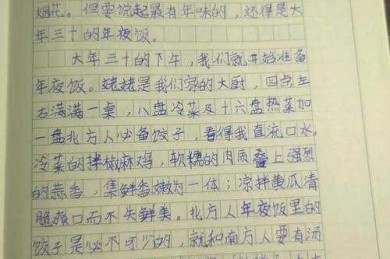 烟花。但要说起最有年味的，还得是大
年三十的年夜饭。
大年三十的下午，我们就开始准备
年夜饭。姥姥是我们家的大厨，四点左
右满满一桌，八盘冷菜及十六盘热菜加
一盘北方人必备饺子，看得我直流口水。
冷菜的拌椒麻鸡，软糯的肉质叠上强烈
的蒜香，集鲜香嫩为一体；凉拌黄瓜清
脆爽口而不失鲜美。北方人年夜饭里的
饺子是必不可少的，就和南方人要有汤